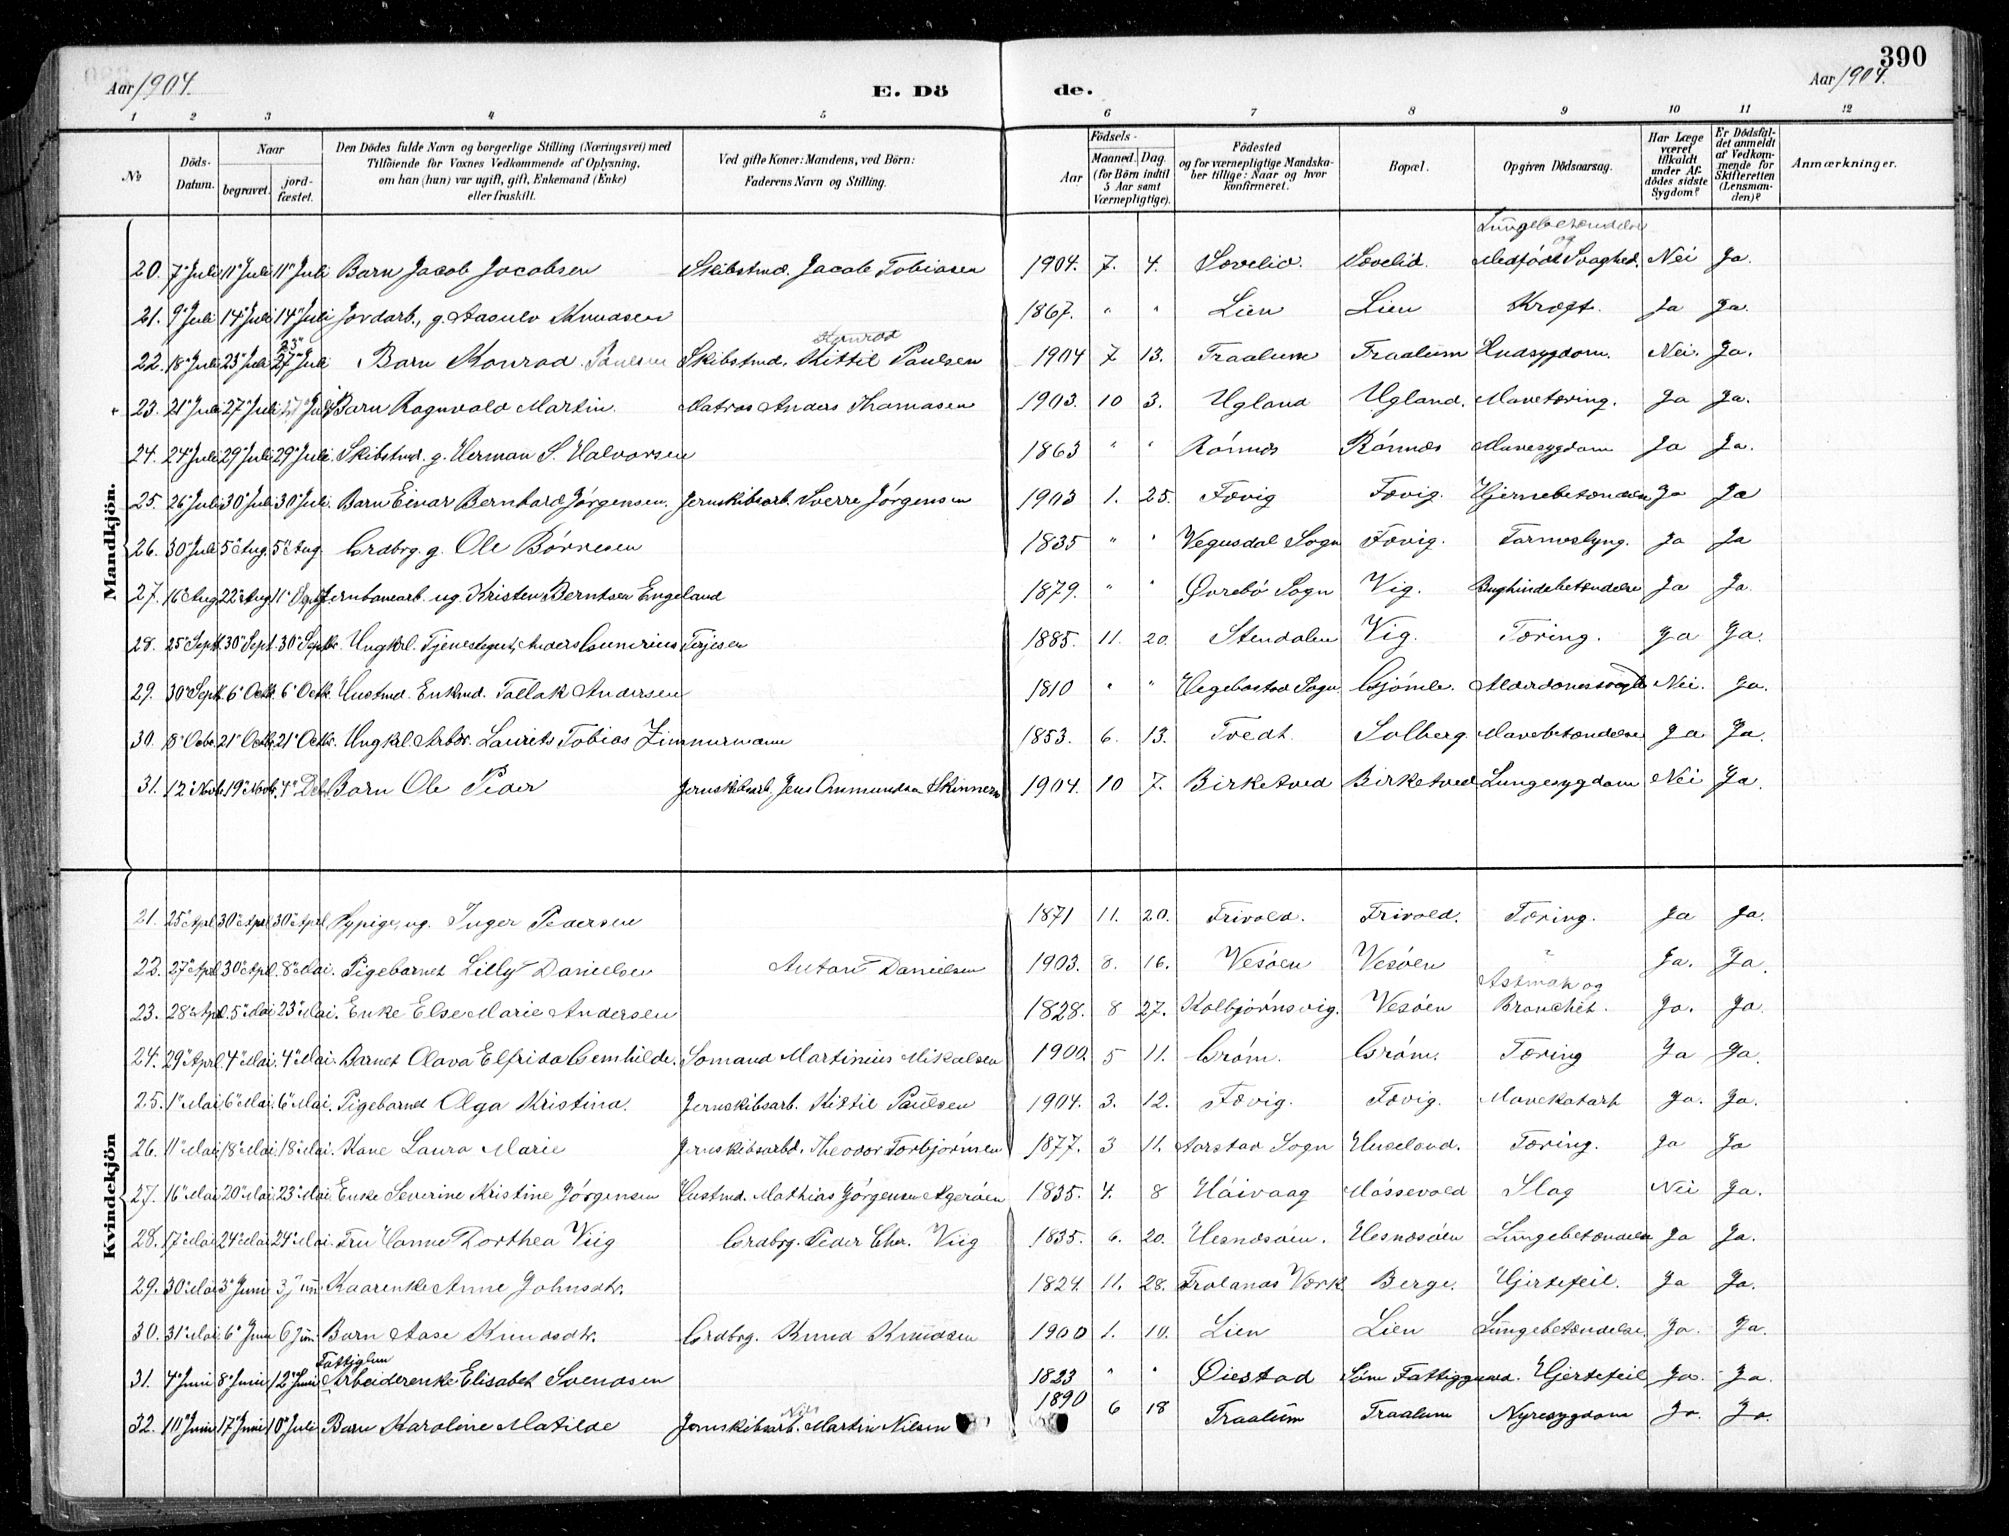 390
Aar 1904.
E. Dö
de.
Aar 1904.
1 2 3 4 5 6 7 8 9 10 11 12
No
Döds-Datum.
Naar
begravet.
jordfæstet.
Den Dödes fulde Navn og borgerlige Stilling (Næringsvei) med
Tilföiende for Voxnes Vedkommende af Oplysning,
om han (hun) var ugift, gift, Enkemand (Enke)
eller fraskilt.
Ved gifte Koner: Mandens, ved Börn:
Faderens Navn og Stilling.
Födsels-
Aar
Maaned. Dag.
(for Börn indtil
5 Aar samt
Værnepligtige).
Födested
og for værnepligtige Mandskaber tillige: Naar og hvor
konfirmeret.
Bopæl.
Opgiven Dödsaarsag.
Har Læge
været
tilkaldt
under Afdödes sidste
Sygdom?
Er Dödsfaldet anmeldt
af Vedkommende for
Skifteretten
(Lensmanden)?
Anmærkninger.
Mandkjön.
Lungebetændelse
og
20. 7 Juli 11 Juli 11 Juli Barn Jacob Jacobsen Skibstmd. Jacob Tobiasen 1904. 7. 4. Sævelid. Sævelid. Medfødt Svaghed. Nei Ja.
21. 9 Juli 14 Juli 14 Juli Jordarb., g. Aasulv Knudsen 1867. " " Lien Lien Kræft. Ja Ja.
23 Konrad
22. 18 Juli 23 Juli 27 Juli Barn Konrad Paulsen Skibstmd. Kittil Paulsen 1904 7 13. Traalum Traalum Hudsygdom. Nei. Ja.
+ 23. 21 Juli 27 Juli 27 Juli Barn Ragnvald Martin. Matros Anders Thomasen 1903. 10 3. Ugland Ugland. Mavetæring. Ja Ja.
24. 24 Juli 29 Juli 29 Juli. Skibstmd. g. Herman S. Halvorsen 1863 " " Rønnes Rønnes Mavesygdom Ja Ja.
25. 26 Juli 30 Juli 30 Juli. Barn Einar Bernhard Jørgensen. Jernskibsarb. Sverre Jørgensen 1903 1. 25. Fævig Fævig. Hjernebetændelse Ja Ja
26. 30 Juli 5 Aug. 5 Aug. Grdbrg. g. Ole Børresen 1835 " " Vegusdal Sogn Fævig. Tarmeslyng. Ja Ja
27. 16 Aug 22 Aug 11 Jernbanearb. ug. Kristen Berntsen Engeland 1879. " " Øvrebø Sogn Vig. Bughindebetændelse Ja Ja
28. 25 Sept. 30 Sept. 30 Septr. Ungkrl. Tjenestegut, Anders Gunerius Terjesen 1885. 11. 20. Stendalen Vig. Tæring. Ja Ja.
29. 30 Sept. 6 Octb. 6 Octb. Hustmd. Enkmd. Tallak Andersen 1810 " " Hegebostad Sogn Gjømle. Alderdomssvagh. Nei. Ja.
30. 18 Octb. 21 Octb. 21 Octb. Ungkl. Arbdr. Laurits Tobias Zimmermann 1853. 6. 13. Tvedt. Solberg. Mavebetændelse Ja Ja.
31. 12 Novb. 19 Novb. 4 Barn Ole Peder Jernskibsarb. Jens Anmundsen Skinnern 1904. 10 7. Birketved Birketved Lungesygdom Nei Ja.
Kvindekjön
21. 25 Apl 30 Apl 30 Aprl. Sypige, ug. Inger Pedersen 1871 11. 20. Frivold. Frivold. Tæring. Ja Ja.
22. 27 Apl 30 Apl. 8 Mai. Pigebarnet Lilly Danielsen Anton Danielsen 1903. 8. 16. Vesøen Vesøen " Ja. Ja.
Astmah og
23. 28 Apl. 5 Mai 23 Mai. Enke Else Marie Andersen 1828. 8 27. Kolbjørnsvig. Vesøen Bronchit. Ja. Ja.
24. 29 Aprl. 4 Mai. 4 Mai. Barnet Olava Elfrida Gemhilde. Sømand Martinius Mikalsen 1900. 5 11. Grøm. Grøm. Tæring Ja Ja.
25. 1 Mai 6 Mai 6 Mai. Pigebarnet Olga Kristina. Jernskibsarb. Kittil Paulsen 1904. 3. 12. Fævig. Fævig. Mavekatarh Ja. Ja.
26. 11 Mai 18 Mai 18 Mai. Kone Laura Marie Jernskibsarbd. Theodor Torbjørnsen 1877. 3 11. Aarstad Sogn Huseland. Tæring. Ja Ja
27. 16 Mai 20 Mai 23 Mai. Enke Severine Kristine Jørgensen Hustmd. Mathias Jørgensen Ågerøen 1835. 4. 8 Høivaag Møssevold Slag Nei Ja.
28. 17 Mai 24 Mai 24 Mai. Fru Hanne Dorthea Viig Grdbrg. Peder Chr. Viig 1835. 6. 20. Hesnæsøen. Hesnæsøen Lungebetændelse Ja Ja.
29. 30 Mai 3 Juni 3 Jun. Kaarenke Anne Johnsdtr. 1824. 11. 28. Frolands Værk Berge. Hjertefeil. Ja Ja.
30. 31 Mai 6 Juni 6 Jun. Barn Aase Knudsdtr. Grdbrg. Knud Knudsen 1900 1. 10. Lien Lien Lungebetændelse. Ja. Ja.
Fattiglem
31. 4 Juni 8 Juni 12 Juni Arbeiderenke Elisabet Svendsen 1823 " " Øiestad Søm Fattiggaard. Hjertefeil Ja. Ja.
Nils 1890
32. 10 Juni 17 Juni 10 Juli Barn Karoline Matilde Jernskibsarb. Martin Nilsen 6 18 Traalum Traalum Nyresygdom Ja. Ja.